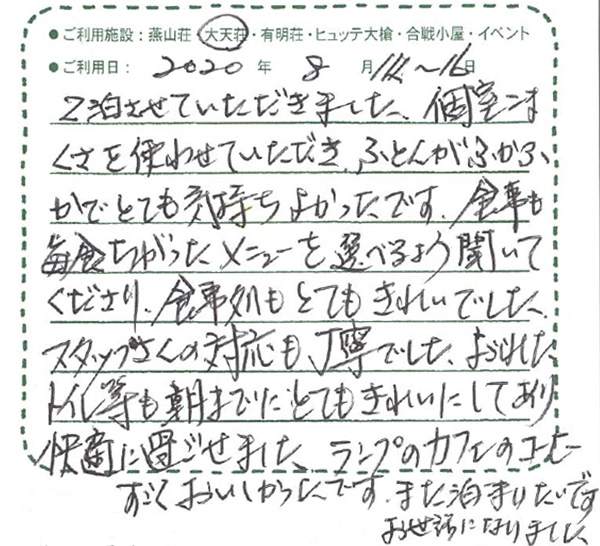 ●ご利用施設：燕山荘・大天荘・有明荘・ヒュッテ大槍・合戦小屋・イベント
●ご利用日：2020年8月14〜16日
2泊させていただきました。個室こま
くさを使わせていただき、ふとんがふかふ
かでとても気持ちよかったです。食事も
毎食ちがったメニューを選べるよう聞いて
くださり、食事処もとてもきれいでした。
スタッフさんの対応も丁寧でした。よごれた
トイレ等も朝までにとてもきれいにしてあり
快適に過ごせました。ランプのカフェのコーヒー
すごくおいしかったです。また泊まりたいです
お世話になりました